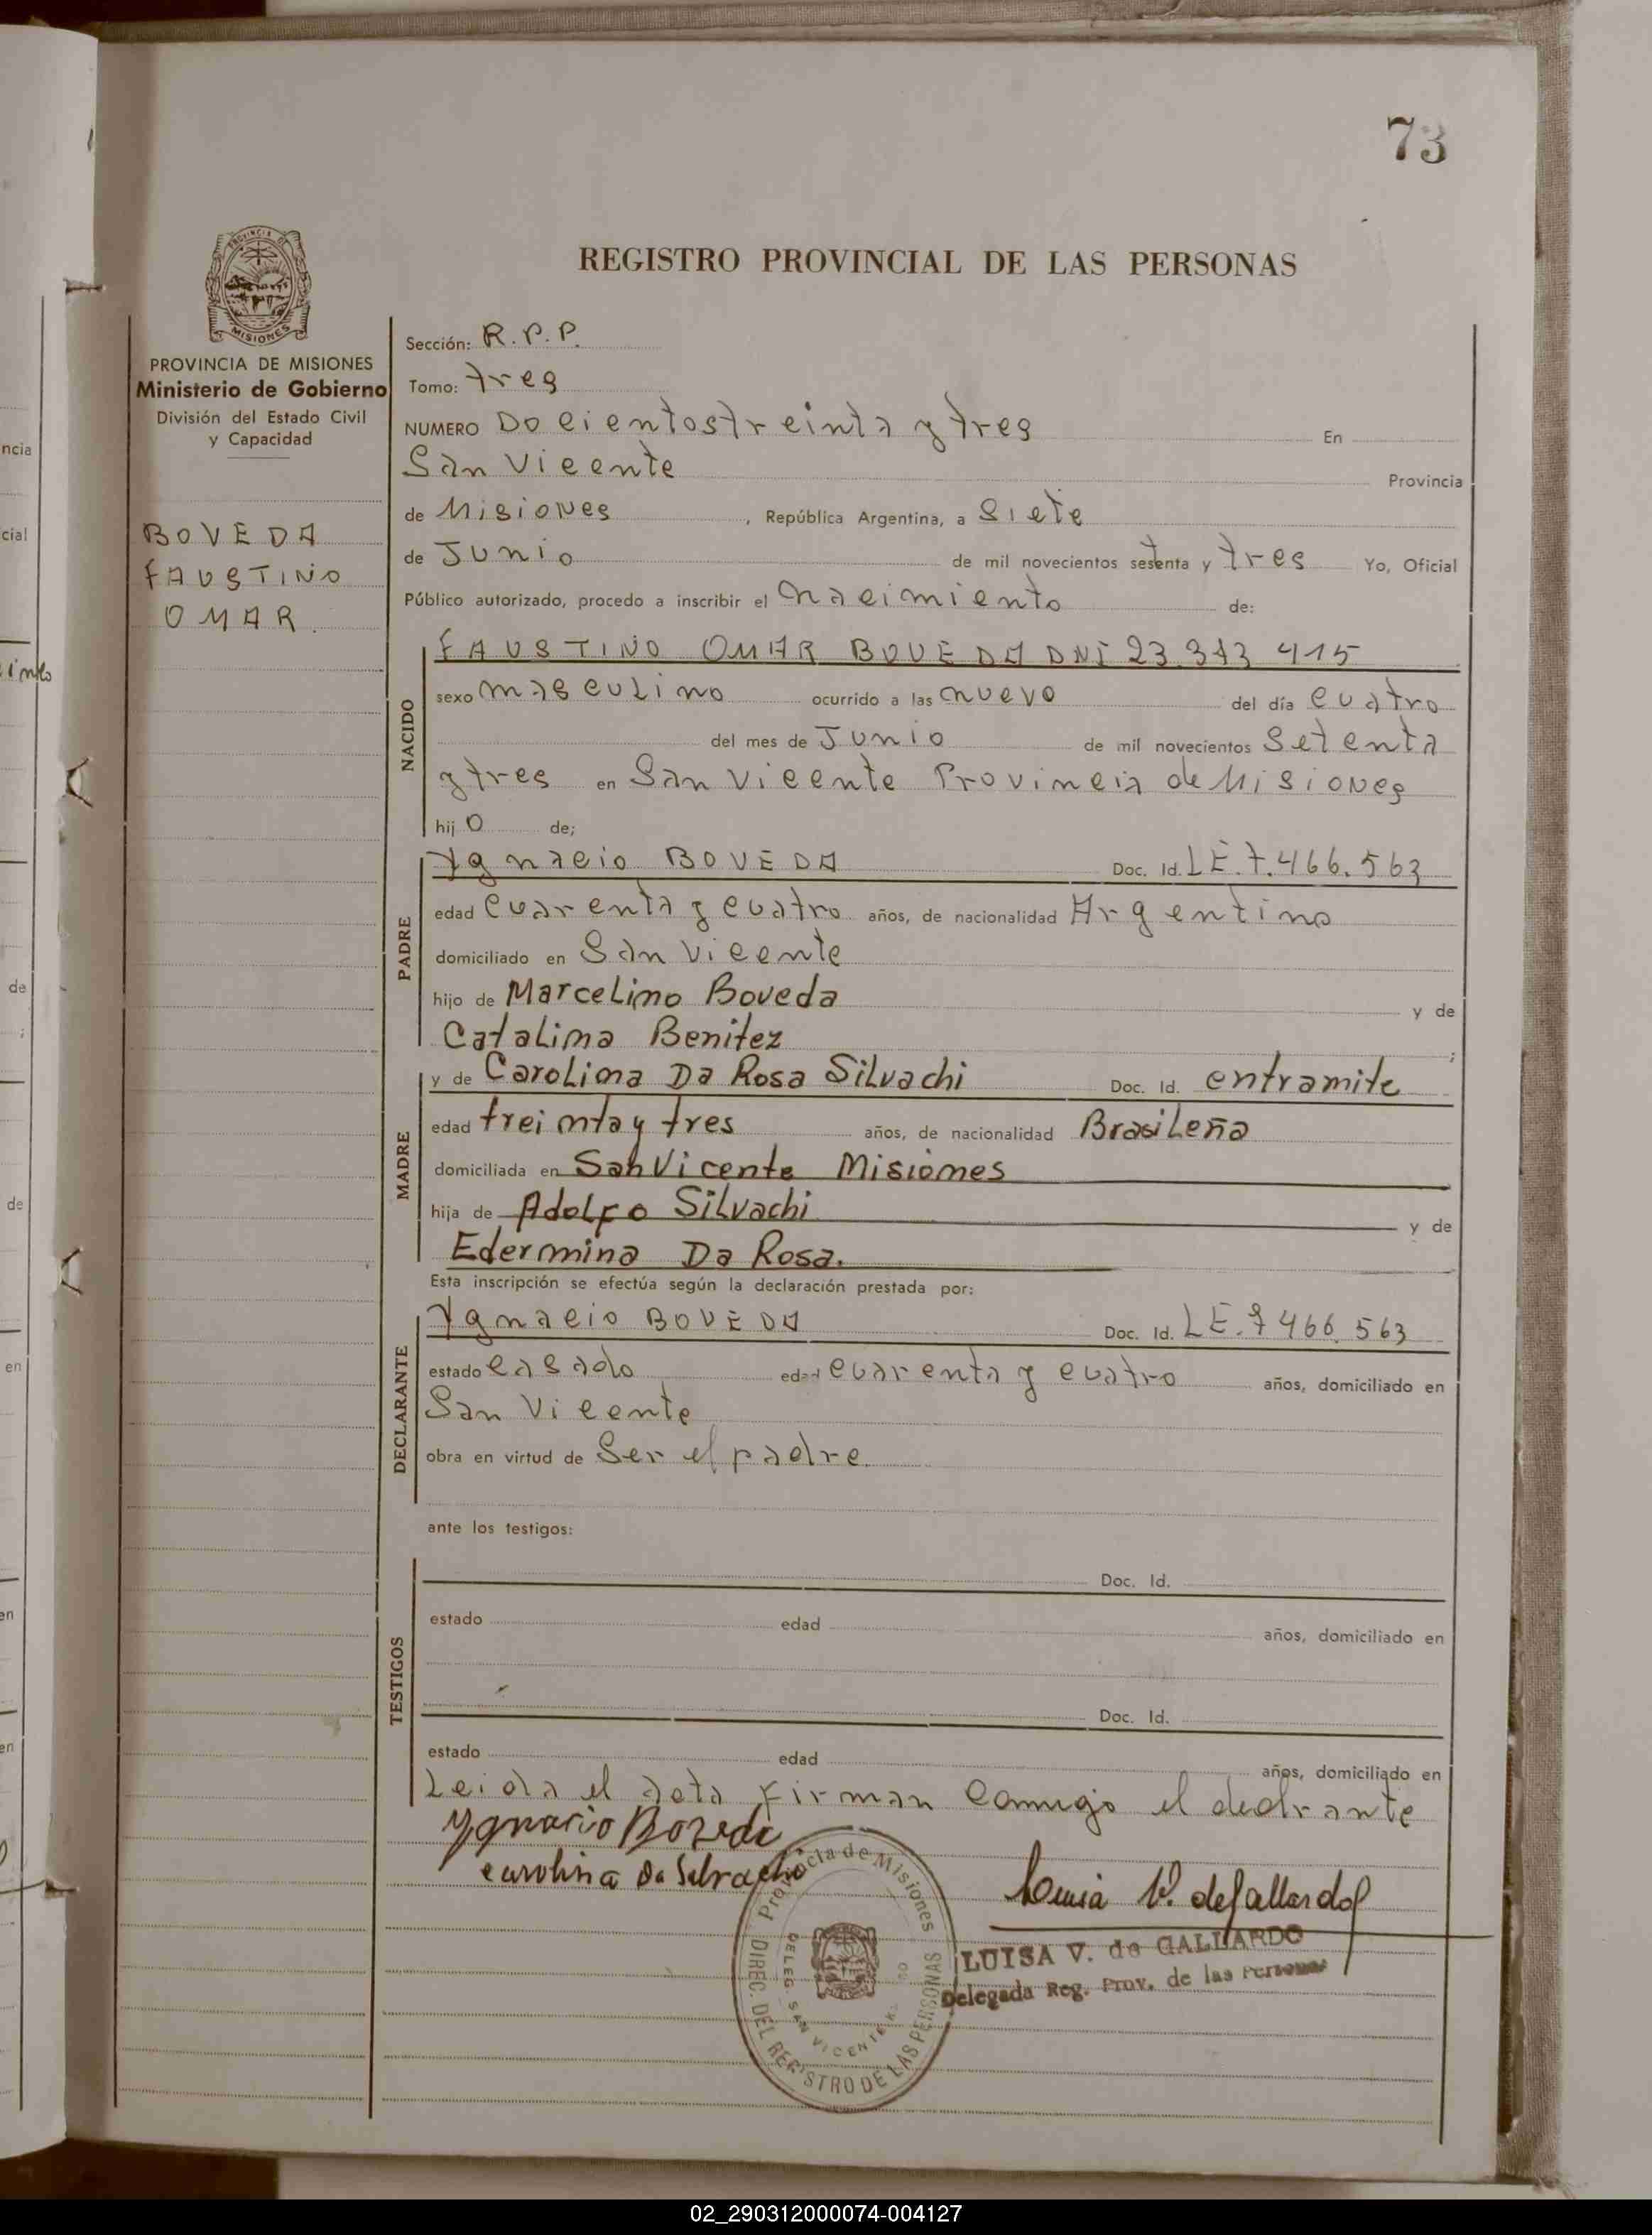 73
REGISTRO PROVINCIAL DE LAS PERSONAS
PROVINCIA DE MISIONES
PROVINCIA DE MISIONES
Ministerio de Gobierno
División del Estado Civil
y Capacidad
BOVEDA
FAUSTINO
OMAR.
Sección: R.P.P.
Tomo: tres
NUMERO Docientostreinta y tres En
San Vicente Provincia
de Misiones, República Argentina, a Siete
de Junio de mil novecientos setenta y tres Yo, Oficial
Público autorizado, procedo a inscribir el nacimiento de:
NACIDO
FAUSTINO OMAR BOVEDA DNI 23.343 415
sexo masculino ocurrido a las nueve del día cuatro
del mes de Junio de mil novecientos Setenta
y tres en San Vicente Provincia de Misiones
hijo de;
PADRE
Ygnacio BOVEDA Doc. Id. LE.7.466.563
edad cuarenta y cuatro años, de nacionalidad Argentino
domiciliado en San Vicente
hijo de Marcelino Boveda y de
Catalina Benitez ;
MADRE
y de Carolina Da Rosa Silvachi Doc. Id. entramite
edad treinta y tres años, de nacionalidad Brasileña
domiciliada en San Vicente Misiones
hija de Adolfo Silvachi y de
Edermina Da Rosa.
Esta inscripción se efectúa según la declaración prestada por:
DECLARANTE
Ygnacio BOVEDA Doc. Id. LE.7 466.563
estado casado edad cuarenta y cuatro años, domiciliado en
San Vicente
obra en virtud de Ser el padre.
ante los testigos:
TESTIGOS
Doc. Id.
estado edad años, domiciliado en
Doc. Id.
estado edad años, domiciliado en
Leida el acta firman Conmigo el
Ygnacio Boveda
carolina Da
Luisa V. de Gallardo
LUISA V. de GALLARDO
Delegada Reg. Prov. de las Personas
Provincia de Misiones
DIREC. DEL REGISTRO DE LAS PERSONAS
DELEG. SAN VICENTE
ncia
cial
de
;
de
en
en
en
02_290312000074-004127